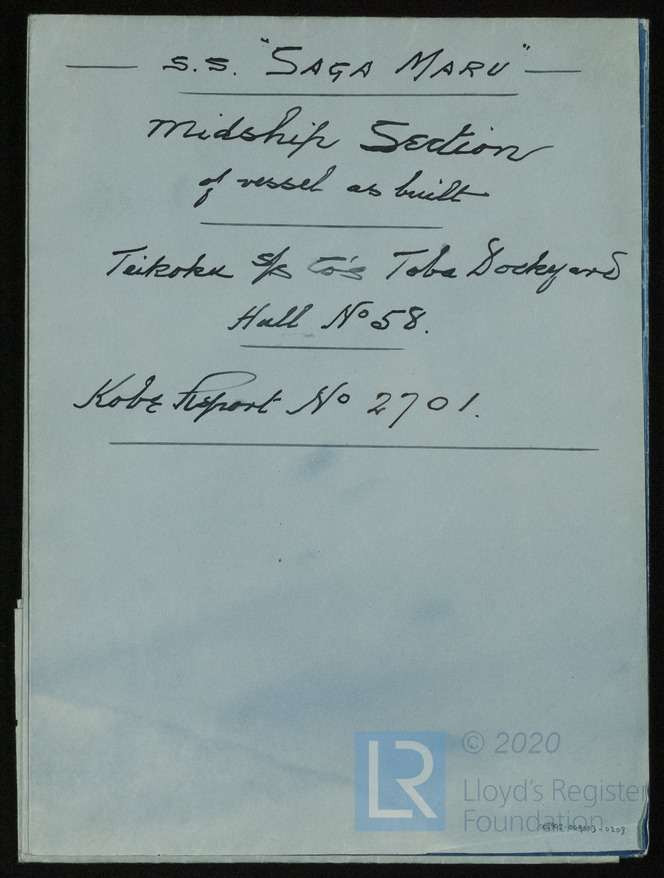 S.S. "SAGA MARU"
Midship Section
of vessel as built
Teikoku S/S Co's Toba Dockyard
Hull No 58.
Kobe Report No 2701.
LR
© 2020
Lloyd's Register
Foundation